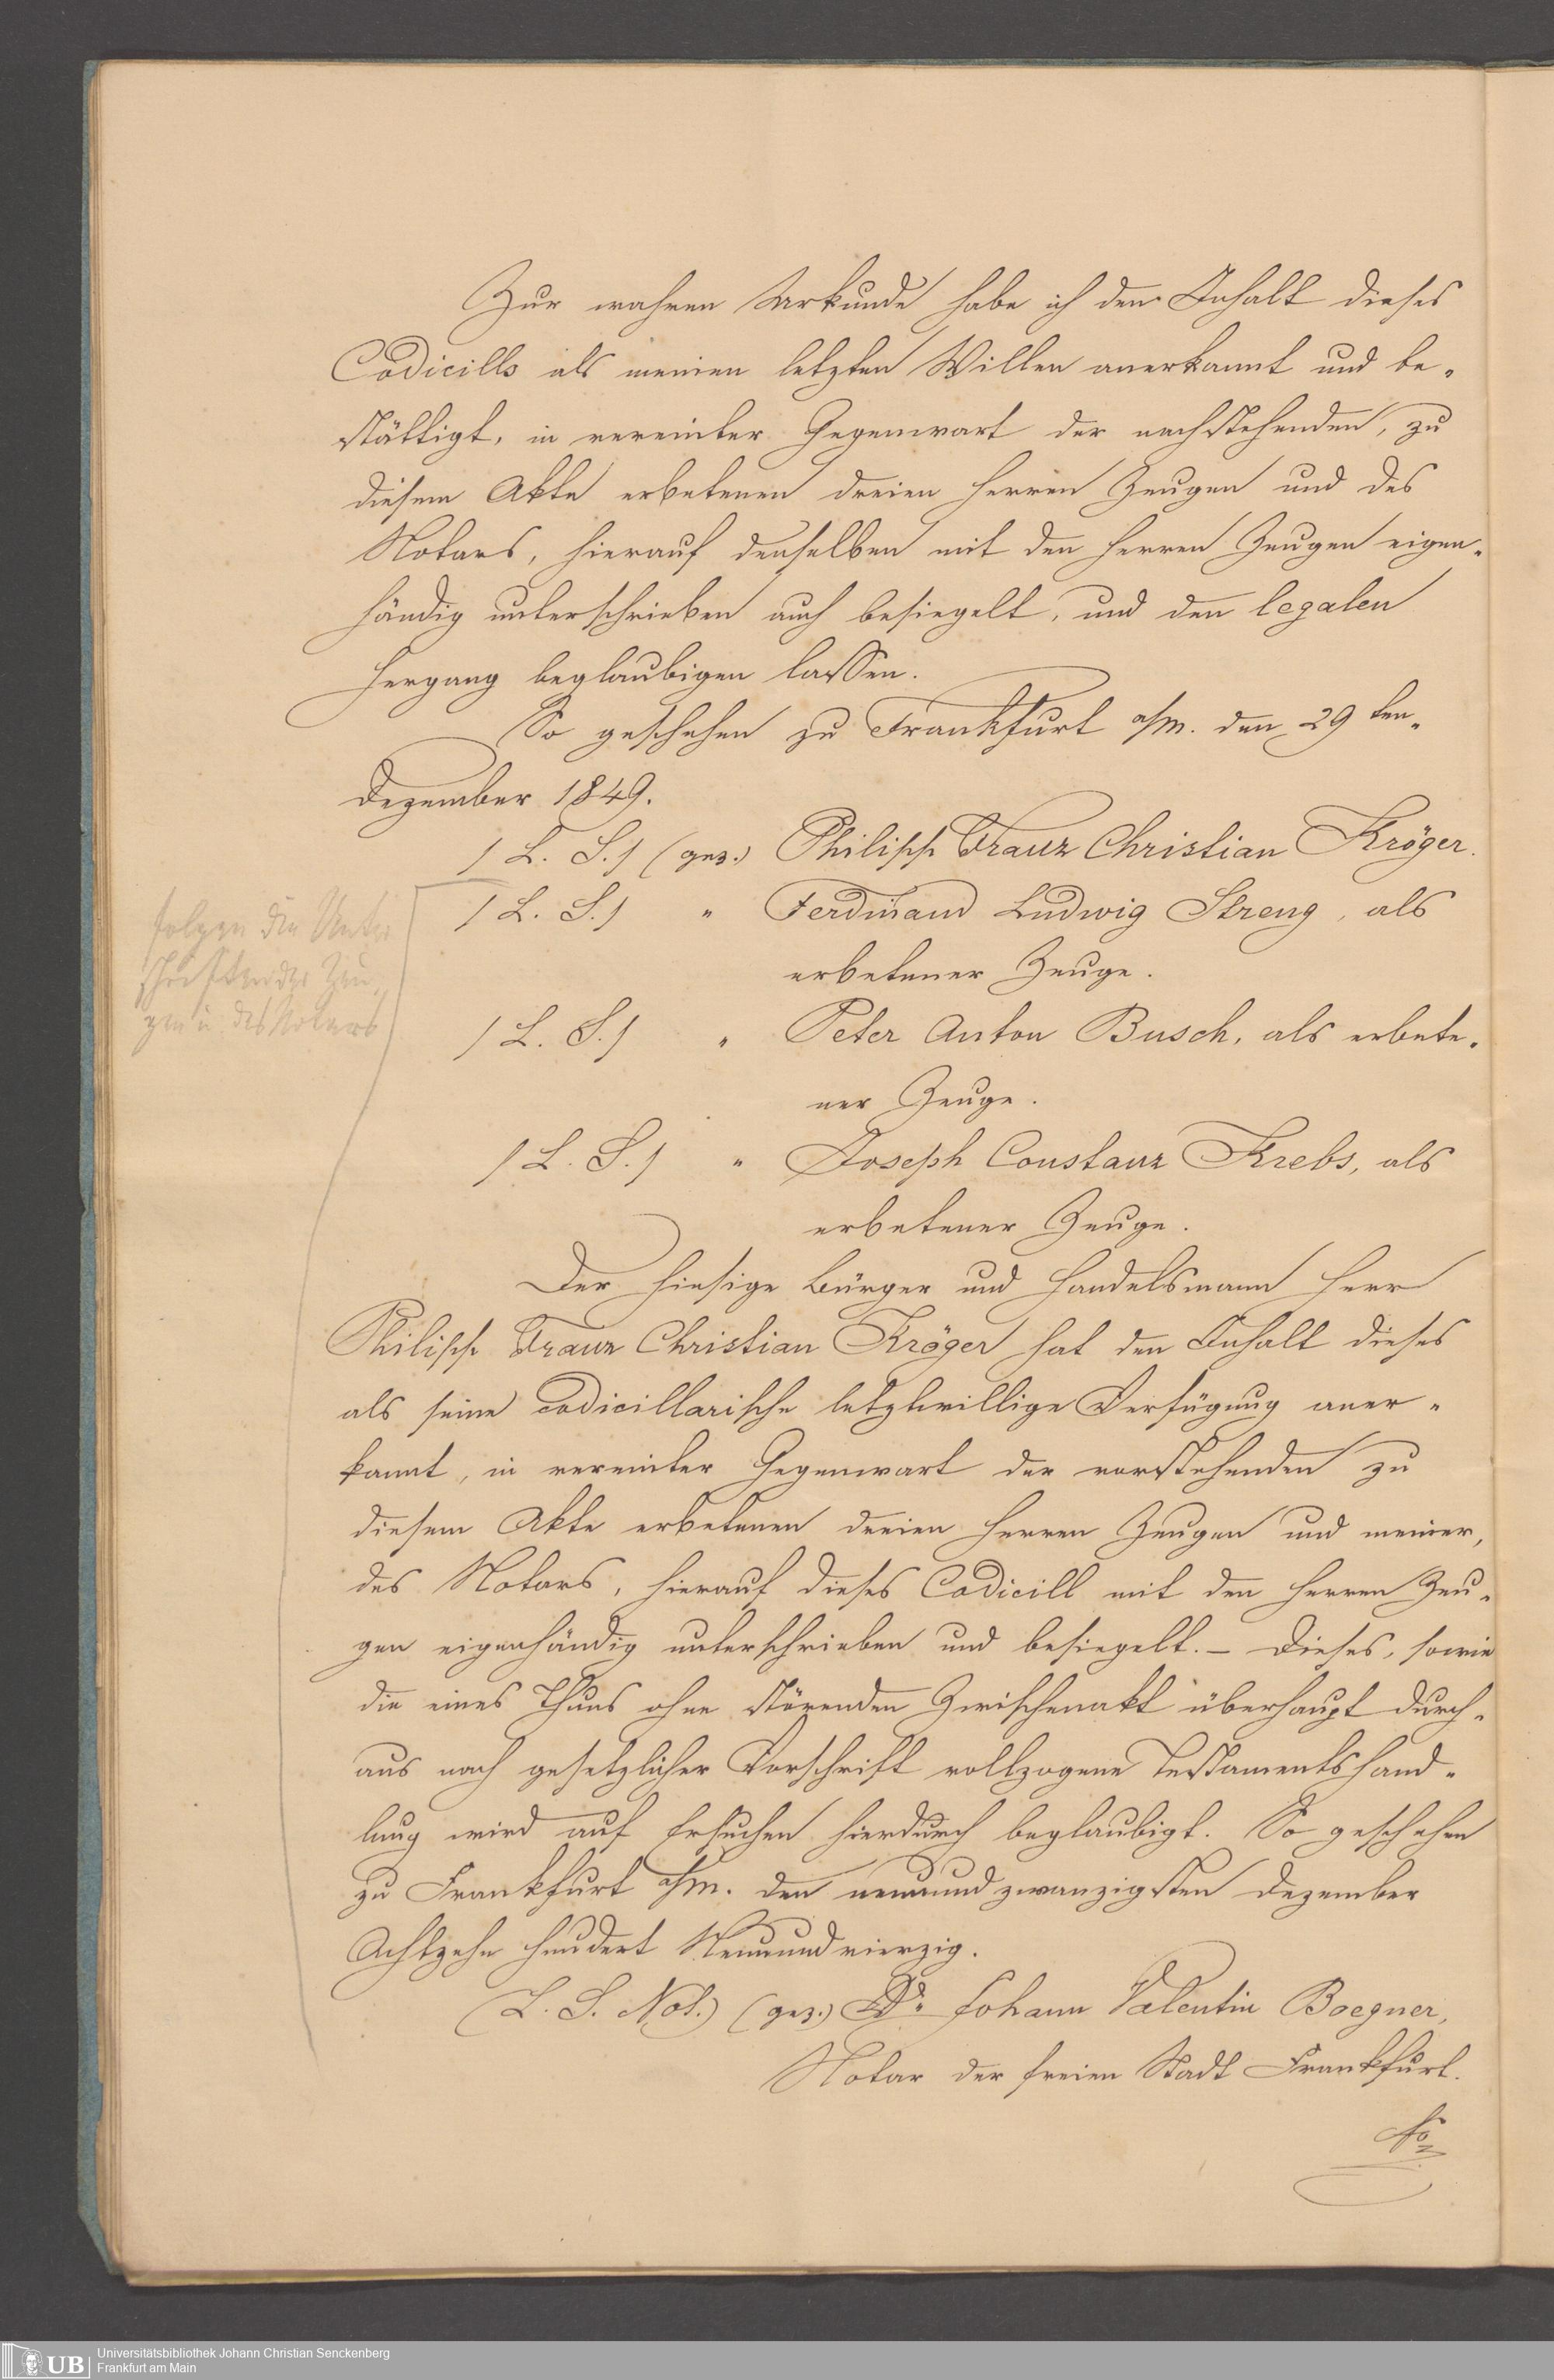 Zur wahren Urkunde habe ich den Inhalt dieses
Codicills als meinen letzten Willen anerkannt und be-
stättigt, in vereinter Gegenwart der nachstehenden, zu
diesem Akte erbetenen dreien Herren Zeugen und des
Notars, hierauf denselben mit den Herren Zeugen eigen-
händig unterschrieben auch besiegelt, und den legalen
Hergang beglaubigen lassen.
So geschehen zu Frankfurt a/m. den 29 ten
Dezember 1849.
/ L. S. / (gez.) Philipp Franz Christian Kröger.
/ L. S. / " Ferdinand Ludwig Streng, als
erbetener Zeuge.
/ L. S. / " Peter Anton Busch, als erbete-
ner Zeuge.
/ L. S. / " Joseph Constanz Krebs, als
erbetener Zeuge.
folgen die Unter
schriften der Zeu-
gen u. des Notars
Der hiesige Bürger und Handelsmann Herr
Philipp Franz Christian Kröger hat den Inhalt dieses
als seine codicillarische letztwillige Verfügung aner-
kannt, in vereinter Gegenwart der vorstehenden zu
diesem Akte erbetenen dreien Herren Zeugen und meiner,
des Notars, hierauf dieses Codicill mit den Herren Zeu-
gen eigenhändig unterschrieben und besiegelt. – Dieses, sowie
die eines Thuns ohne störenden Zwischenakt überhaupt durch-
aus nach gesetzlicher Vorschrift vollzogene Testamentshand-
lung wird auf Ersuchen hierdurch beglaubigt. So geschehen
zu Frankfurt a/m. den neunundzwanzigsten Dezember
Achtzehn hundert Neunundvierzig.
(L. S. Not.) (gez.) Dr. Johann Valentin Boegner,
Notar der freien Stadt Frankfurt.
Universitätsbibliothek Johann Christian Senckenberg
Frankfurt am Main
UB